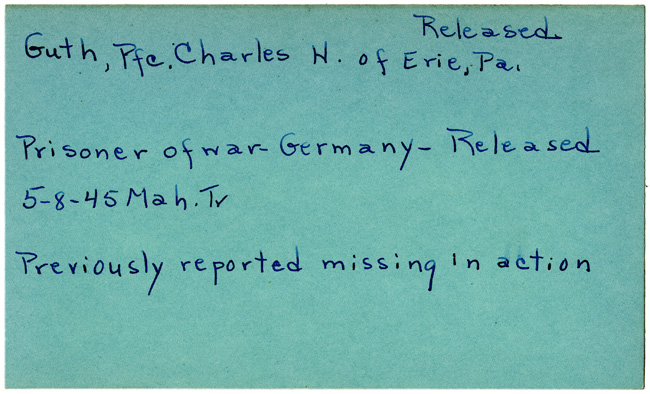 Released
Guth, Pfc. Charles H. of Erie, Pa.
Prisoner of war- Germany- Released
5-8-45 Mah. Tr
Previously reported missing in action